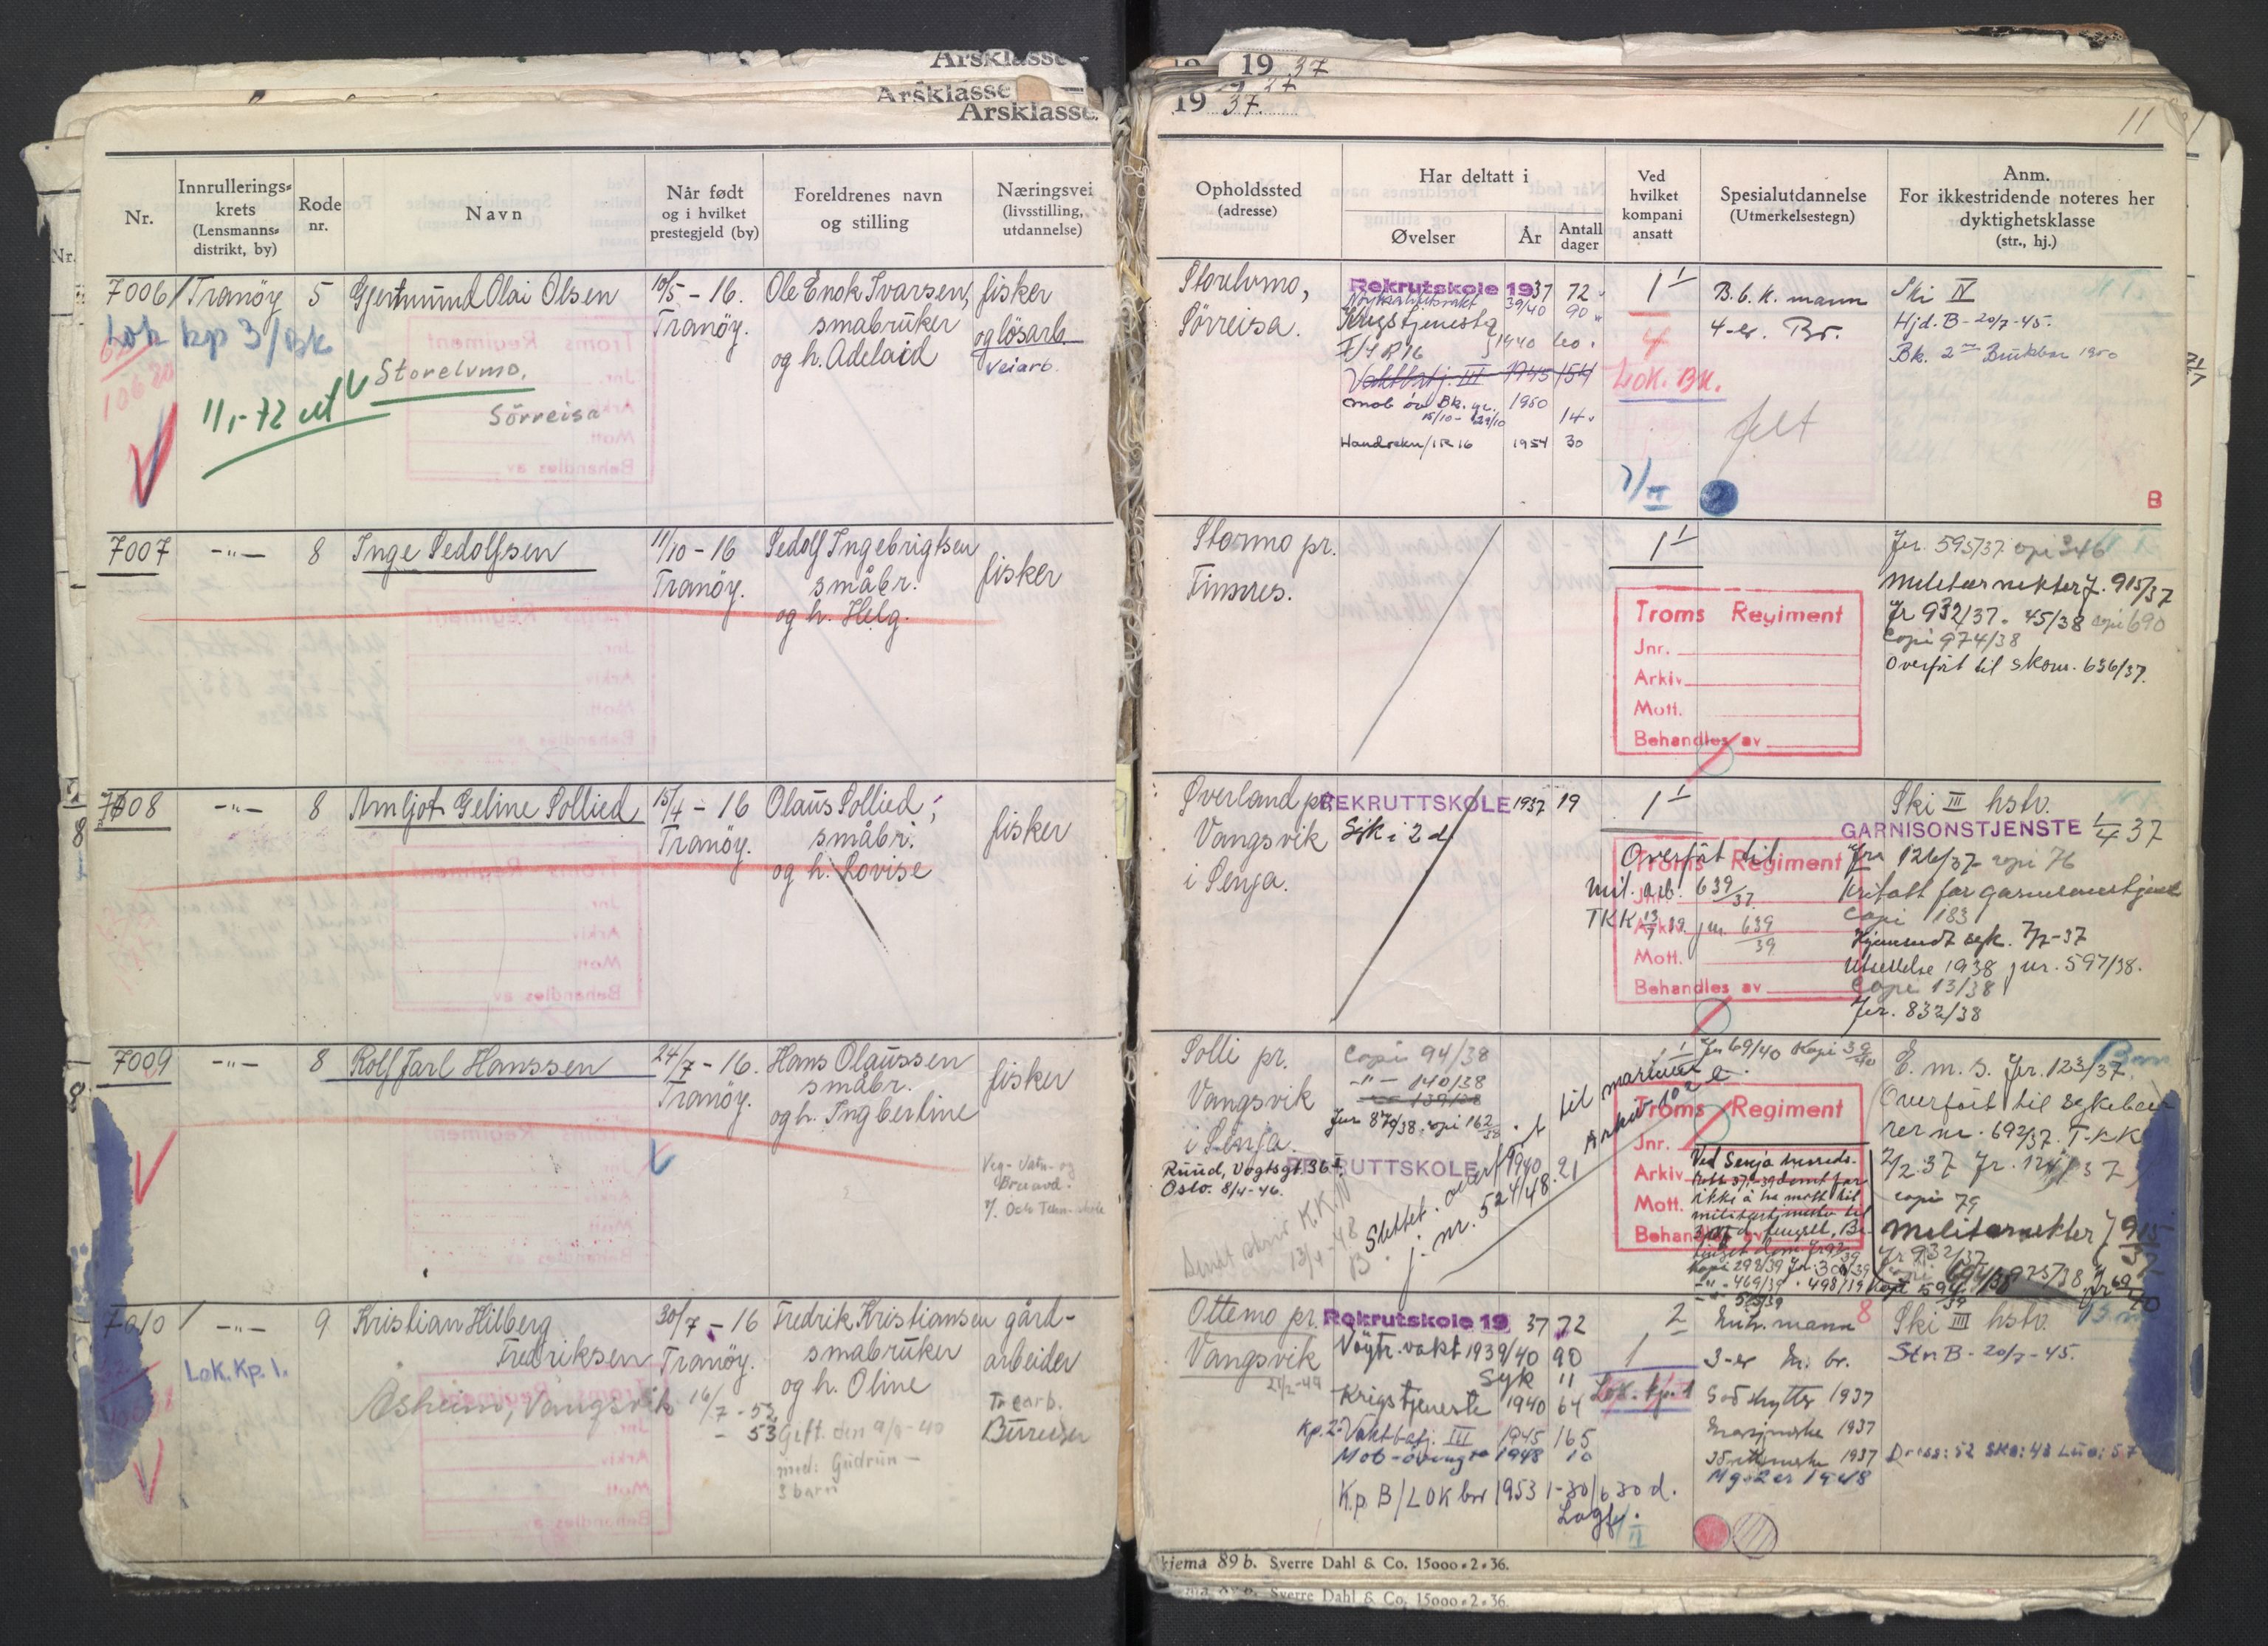 Årsklasse
Årsklasse
Årsklasse
19 37
19 37.
11
Nr.
Innrullerings=
krets
(Lensmanns=
distrikt, by)
Rode
nr.
Navn
Når født
og i hvilket
prestegjeld (by)
Foreldrenes navn
og stilling
Næringsvei
(livsstilling,
utdannelse)
Opholdssted
(adresse)
Har deltatt i
Øvelser
År
Antall
dager
Ved
hvilket
kompani
ansatt
Spesialutdannelse
(Utmerkelsestegn)
Anm.
For ikkestridende noteres her
dyktighetsklasse
(str., hj.)
7006 / Tranöy 5 Gjertmund Olai Olsen
Lok kp 3/Bk
11,-72 ut
Storelvmo,
Sörreisa
10/5 - 16.
Tranöy.
Ole Enok Ivarsen,
småbruker
og h. Adelaid
fisker
og lösarb.
Veiarb.
Storelvmo,
Sörreisa.
Rekrutskole 1937 72
39/40 90
Krigstjeneste
F/I R 16 1940 60
Vaktbatj. III 1945 154
mob öv Bk. 1950
15/10 - 29/10 14
Haudreku/IR 16 1954 30
1
4
Lok. Bk.
B.b.k. mann
4-er. Br.
felt
Ski IV
Hjd. B - 20/7 - 45.
Bk. 2 Brukbar 1950
B
7007 -"- 8 Inge Sedolfsen
11/10 - 16
Tranöy.
Sedolf Ingebrigtsen
småbr.
og h. Helg.
fisker
Stormo pr.
Finsnes.
1
Troms Regiment
Jnr.
Arkiv
Mott.
Behandles av
Jnr. 595/37 copi 346
Militærnekter J. 915/37
Jr 932/37. 45/38 copi 690
Copi 974/38
Overfört til skom. 636/37.
7008 -"- 8 Arnljot Geline Sollied
15/4 - 16
Tranöy.
Olaus Sollied,
småbr.
og h. Lovise
fisker
Överland pr.
Vangsvik
i Senja.
REKRUTTSKOLE 1937 19
Syk i 2 d
1
Overfört til
mil. arb. 639/37
TKK 13/7 39 jnr. 639/39
Troms Regiment
Jnr.
Arkiv
Mott.
Behandles av
Ski III hstv.
GARNISONSTJENSTE 1/4 37
Jnr 126/37 copi 76
Fritatt for garnisonstjeneste
Copi 183
Hjemsendt syk. 7/7-37
Utsettelse 1938 jnr. 597/38.
Copi 13/38
Jnr. 832/38
7009 -"- 8 Rolf Jarl Hanssen
24/7 - 16.
Tranöy.
Hans Olaussen
småbr.
og h. Ingberline
fisker
Solli pr.
Vangsvik
i Senja.
Ruud, Vogtsgt. 36 I
Oslo. 8/4-46.
Copi 94/38
-"- 140/38
-"- 139/38
Jnr 870/38 copi 162/38
REKRUTTSKOLE 1940 21
Slettet. overfört til marinen
j. nr. 524/48. Arkiv 102 e.
1
Jr 69/40 Kopi 39/40
Troms Regiment
Jnr.
Arkiv
Mott.
Behandles av
Ved Senja herreds-
ikke å ha mött til
Kopi 298/39
-"- 469/39 . 498/39 Kopi 594/39
E.m.s. Jnr. 123/37.
Overfört til sykebæ-
rer nr. 692/37. T.K.K
2/2 37 Jr. 124/37
copi 79
Militærnekter J 915/37
Jr 932/37
7010 / -"- 9 Kristian Hilberg
Fredriksen
Lok. Kp. 1.
Åsheim, Vangsvik
30/7 - 16
Tranöy.
16/7 - 52
- 53
Fredrik Kristiansen
småbruker
og h. Oline
Gift. den 9/9-40
med: Gudrun -
3 barn
gård-
arbeider
Trearb.
Bureiser
Ottemo pr.
Vangsvik
21/2-49
Rekrutskole 1937 72
Nöytr. vakt 1939/40 90
Syk 11
Krigstjeneste 1940 64
Kp. 2: Vaktbatj. III 1945 165
Mob-öving 1948 10
Kp. B/LOK 1953 1-30/6 30 d.
Lagf.
2
1
Lok. kp. 1
8
Enh. mann
3-er M. br.
God skytter 1937
1937
1937
Mg 1948
Ski III hstv.
Str. B - 20/7 - 45.
Dress: 52 Sko: 43 Lue: 57
kjema 89 b. Sverre Dahl & Co. 15000 . 2 . 36.
Sverre Dahl & Co. 15000 . 2 . 36.